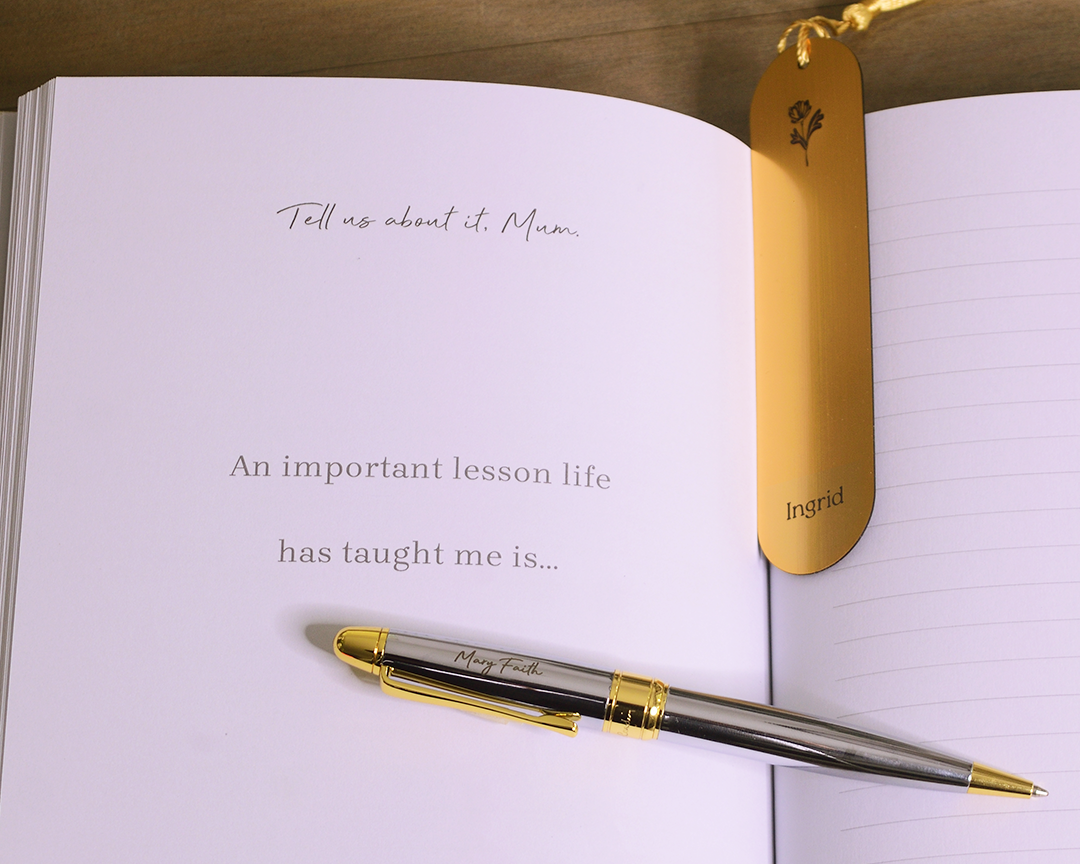 Tell us about it, Mum.
An important lesson life
has taught me is...
Ingrid
Mary Faith